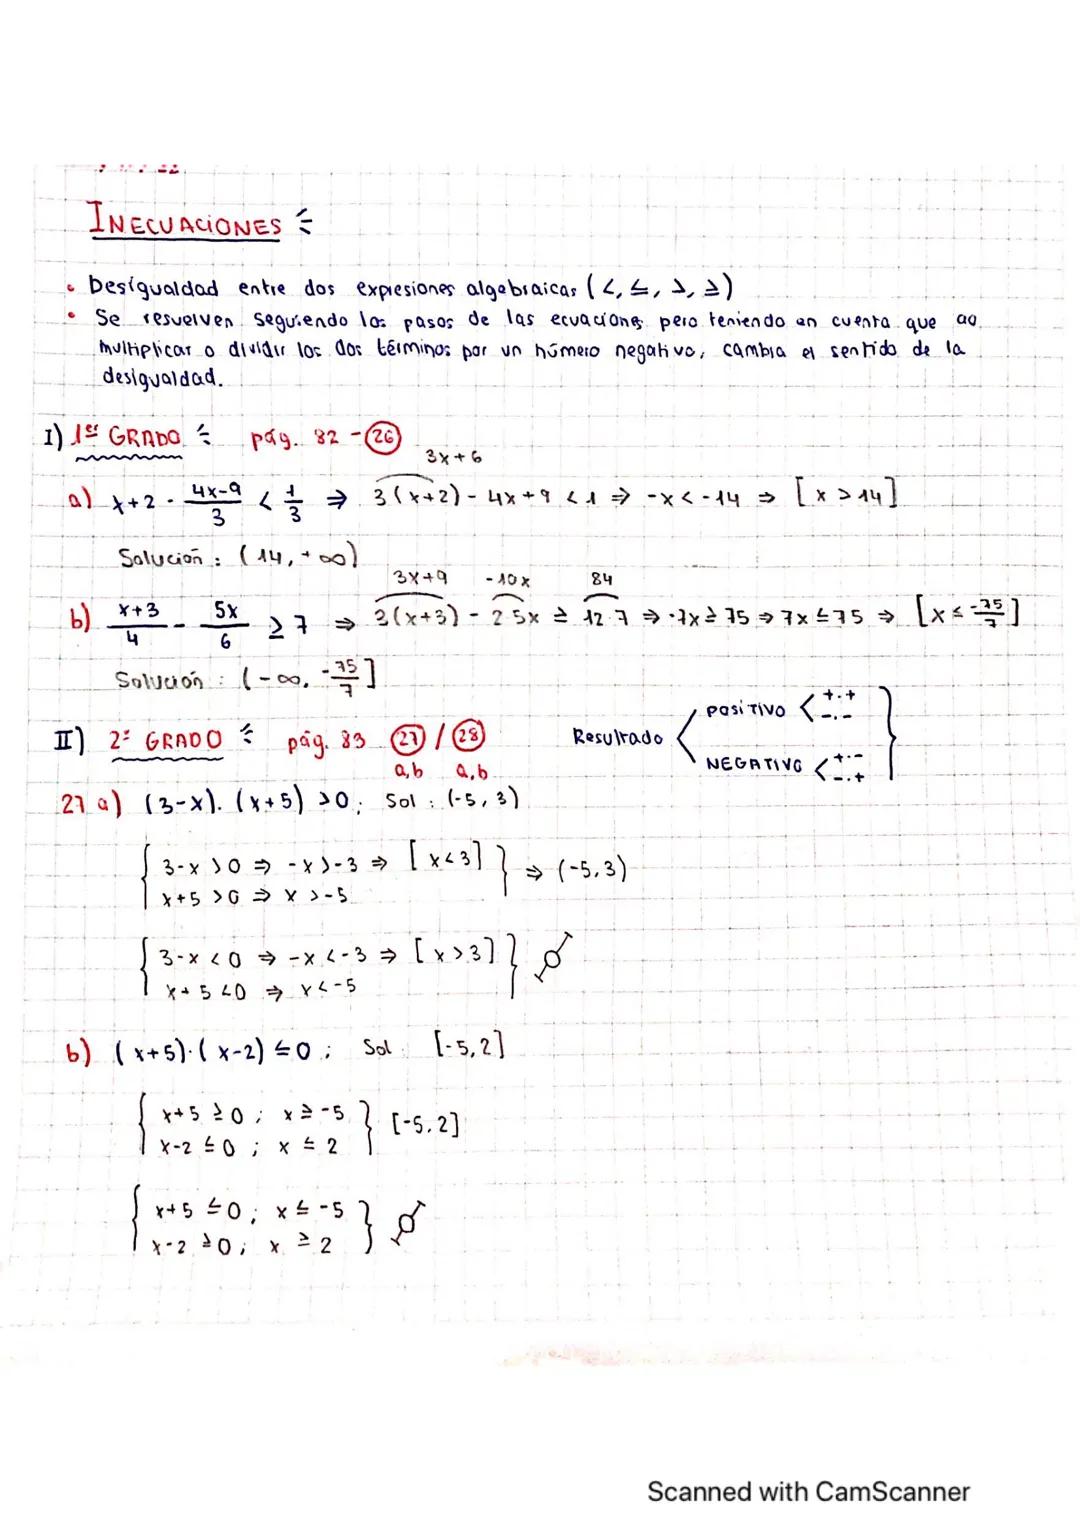 INECUACIONES
• Desigualdad entre dos expresiones algebraicas (<, ≤, >, ≥)
• Se resuelven siguiendo los pasos de las ecuaciones pero teniendo en cuenta que ao
multiplicar o dividir los dos términos por un número negativo, cambia el sentido de la
desigualdad.
I) 1er GRADO pág. 82 - 26
3x+6
a) x+2 - (4x-9)/3 < 1/3 ⇒ 3(x+2) - 4x+9 < 1 ⇒ -x < -14 ⇒ [x > 14]
Solución: (14, +∞)
3x+9 -10x 84
b) (x+3)/4 - 5x/6 ≥ 7 ⇒ 3(x+3) - 2·5x ≥ 12·7 ⇒ -7x ≥ 75 ⇒ 7x ≤ 75 ⇒ [x ≤ -75/7]
Solución: (-∞, -75/7]
II) 2º GRADO pág. 83 27 / 28
a,b a,b
Resultado
POSITIVO +·+
-·-
NEGATIVO +·-
-·+
27 a) (3-x)·(x+5) > 0; Sol: (-5, 3)
3-x > 0 ⇒ -x > -3 ⇒ [x < 3]
x+5 > 0 ⇒ x > -5
⇒ (-5,3)
3-x < 0 ⇒ -x < -3 ⇒ [x > 3]
x+5 < 0 ⇒ x < -5
∅
b) (x+5)·(x-2) ≤ 0; Sol: [-5, 2]
x+5 ≥ 0; x ≥ -5
x-2 ≤ 0; x ≤ 2
[-5, 2]
x+5 ≤ 0; x ≤ -5
x-2 ≥ 0; x ≥ 2
∅
Scanned with CamScanner